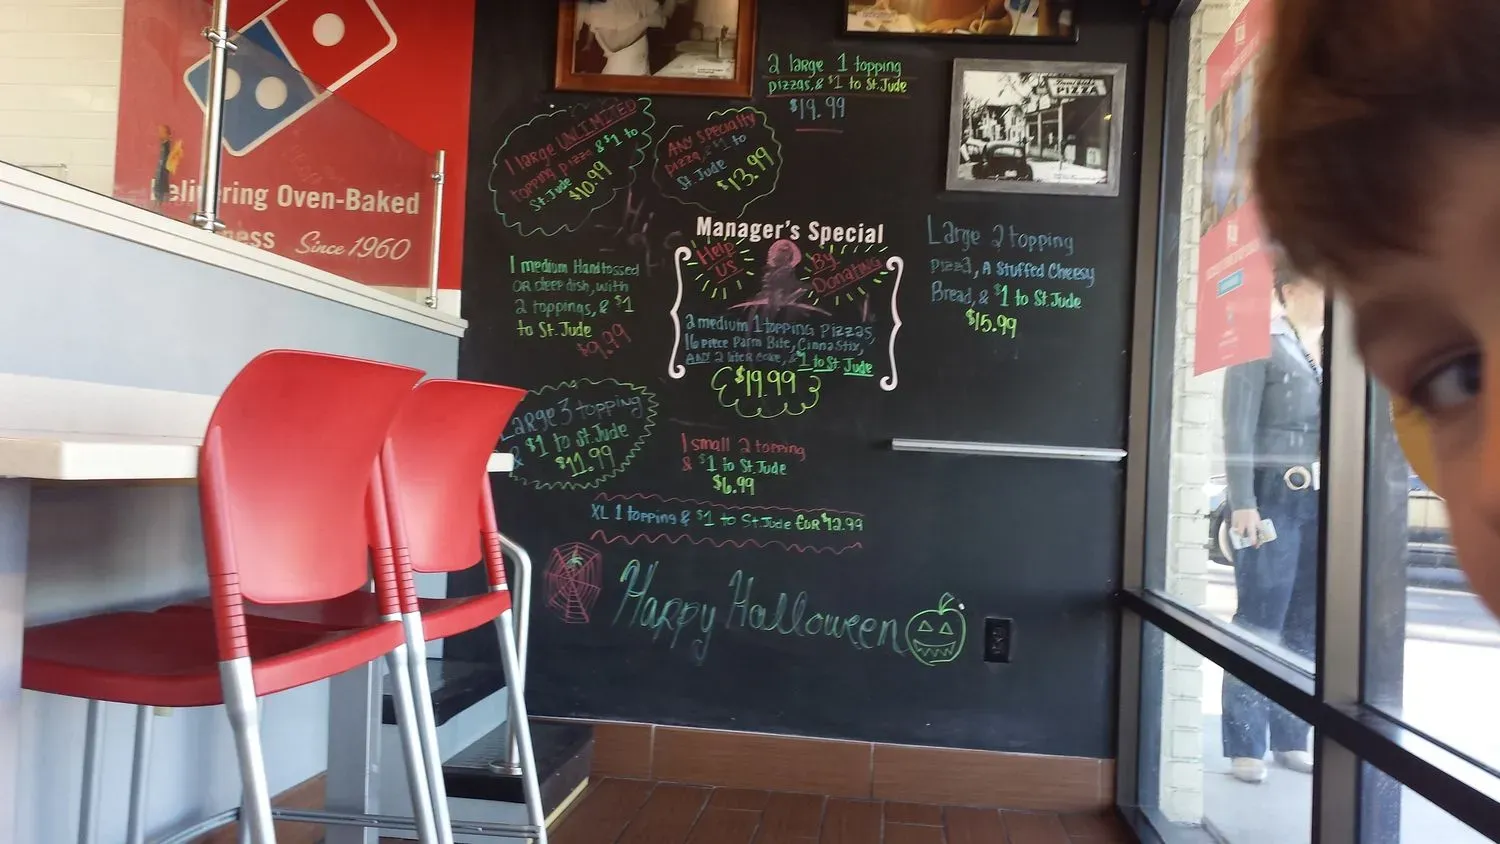 Oven-Baked
Since 1960
2 large 1 topping
pizzas, & $1 to St. Jude
$19.99
PIZZA
1 large UNLIMITED
topping pizza & $1 to
St. Jude $10.99
ANY Specialty
pizza, & $1 to
St. Jude
$13.99
Manager's Special
Help
US
By
Donating
2 medium 1 topping pizzas,
16 piece Parm Bite, CinnaStix,
ANY 2 liter coke, & $1 to St. Jude
$19.99
1 medium Handtossed
OR deep dish, with
2 toppings, & $1
to St. Jude
$9.99
Large 2 topping
pizza, A Stuffed Cheesy
Bread, & $1 to St. Jude
$15.99
Large 3 topping
& $1 to St. Jude
$11.99
1 small 2 topping
& $1 to St. Jude
$6.99
XL 1 topping & $1 to St. Jude FOR $12.99
Happy Halloween